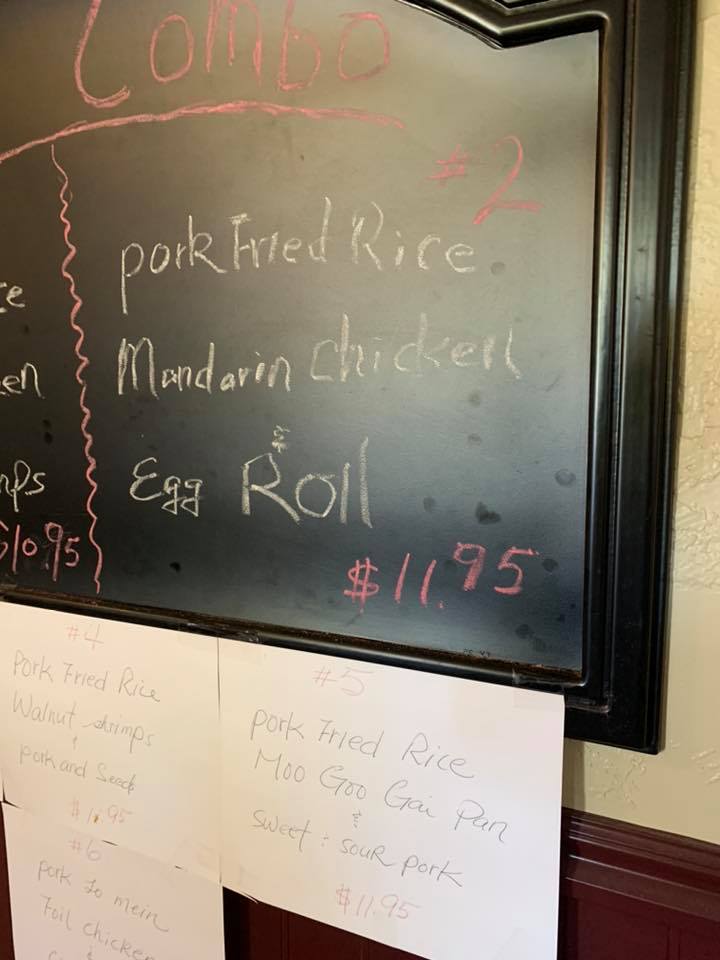 Combo
#2
pork Fried Rice
Mandarin chicken
&
Egg Roll
$11.95
$10.95
#4
Pork Fried Rice
Walnut shrimps
&
pork and Seeds
$11.95
#5
pork Fried Rice
Moo Goo Gai Pan
&
Sweet & souR pork
$11.95
#6
pork Lo mein
Foil chicken
&